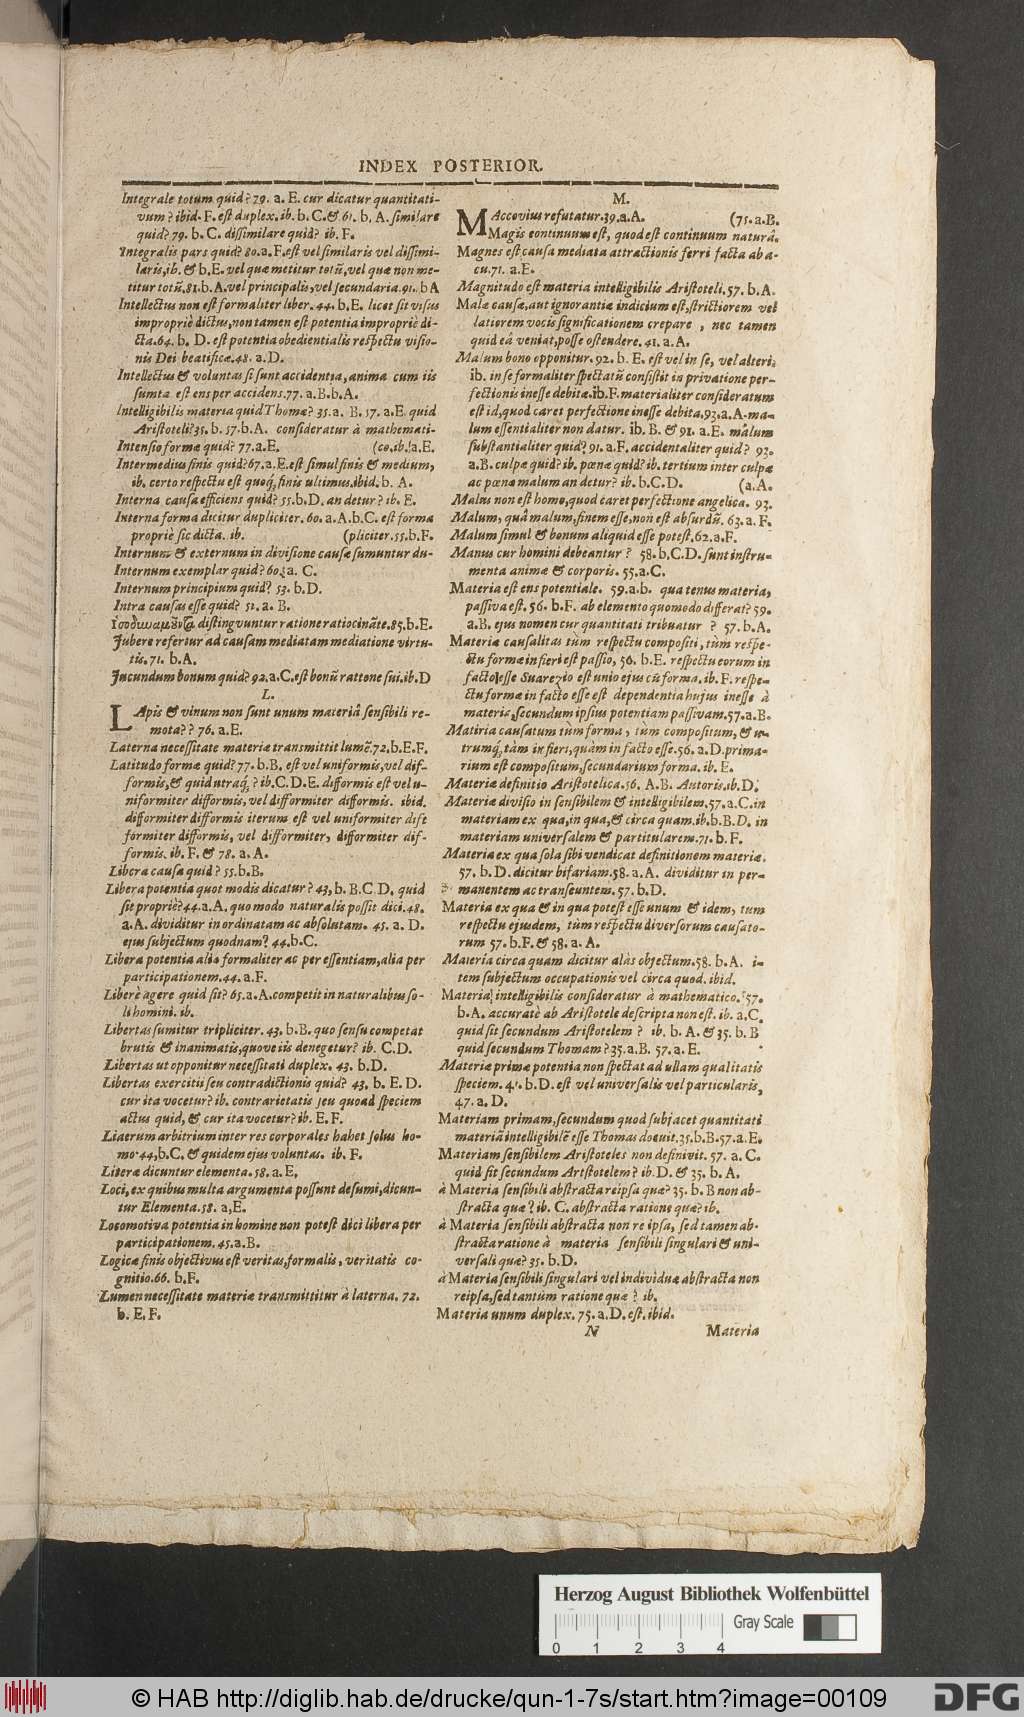 INDEX POSTERIOR.
Integrale totum quid? 79. a. E. cur dicatur quantitati-
vum? ibid. F. est duplex. ib. b. C. & 61. b. A. similare
quid? 79. b. C. dissimilare quid? ib. F.
Integralis pars quid? 80. a. F. est vel similaris vel dissimi-
laris, ib. & b. E. vel quæ metitur totũ, vel quæ non me-
titur totũ. 81. b. A. vel principalis, vel secundaria. 91. b A
Intellectus non est formaliter liber. 44. b. E. licet sit visus
impropriè dictus, non tamen est potentia impropriè di-
cta. 64. b. D. est potentia obedientialis respectu visio-
nis Dei beatificæ. 48. a. D.
Intellectus & voluntas si sunt accidentia, anima cum iis
sumta est ens per accidens. 77. a. B. b. A.
Intelligibilis materia quid Thomæ? 35. a. B. 57. a. E. quid
Aristoteli? 35. b. 57. b. A. consideratur à mathemati-
Intensio formæ quid? 77. a. E. (co. ib. a. E.
Intermedius finis quid? 67. a. E. est simul finis & medium,
ib. certo respectu est quoq; finis ultimus. ibid. b. A.
Interna causa efficiens quid? 55. b. D. an detur? ib. E.
Interna forma dicitur dupliciter. 60. a. A. b. C. est forma
propriè sic dicta. ib. (pliciter. 55. b. F.
Internum & externum in divisione causæ sumuntur du-
Internum exemplar quid? 60. a. C.
Internum principium quid? 53. b. D.
Intra causas esse quid? 51. a. B.
distinguuntur ratione ratiocinãte. 85. b. E.
Jubere refertur ad causam mediatam mediatione virtu-
tis. 71. b. A.
Jucundum bonum quid? 92. a. C. est bonũ ratione sui. ib. D
L.
LApis & vinum non sunt unum materiâ sensibili re-
mota?? 76. a. E.
Laterna necessitate materiæ transmittit lumẽ. 72. b. E. F.
Latitudo formæ quid? 77. b. B. est vel uniformis, vel dif-
formis, & quid utraq;? ib. C. D. E. difformis est vel u-
niformiter difformis, vel difformiter difformis. ibid.
difformiter difformis iterum est vel uniformiter dif-
formiter difformis, vel difformiter, difformiter dif-
formis. ib. F. & 78. a. A.
Libera causa quid? 55. b. B.
Libera potentia quot modis dicatur? 43, b. B. C D. quid
sit propriè? 44. a. A. quo modo naturalis possit dici. 48.
a. A. dividitur in ordinatam ac absolutam. 45. a. D.
ejus subjectum quodnam? 44. b. C.
Libera potentia alia formaliter ac per essentiam, alia per
participationem. 44. a. F.
Liberè agere quid sit? 65. a. A. competit in naturalibus so-
li homini. ib.
Libertas sumitur tripliciter. 43. b. B. quo sensu competat
brutis & inanimatis, quove iis denegetur? ib. C. D.
Libertas ut opponitur necessitati duplex. 43. b. D.
Libertas exercitii seu contradictionis quid? 43. b. E. D.
cur ita vocetur? ib. contrarietatis seu quoad speciem
actus quid, & cur ita vocetur? ib. E. F.
Liberum arbitrium inter res corporales habet solus ho-
mo. 44, b. C. & quidem ejus voluntas. ib. F.
Literæ dicuntur elementa. 58. a. E.
Loci, ex quibus multa argumenta possunt desumi, dicun-
tur Elementa. 58. a, E.
Locomotiva potentia in homine non potest dici libera per
participationem. 45. a. B.
Logicæ finis objectivus est veritas, formalis, veritatis co-
gnitio. 66. b. F.
Lumen necessitate materiæ transmittitur à laterna. 72.
b. E. F.
M.
MAccovius refutatur. 39. a. A. (75. a. B.
Magis continuum est, quod est continuum naturâ.
Magnes est causa mediata attractionis ferri facta ab a-
cu. 71. a. E.
Magnitudo est materia intelligibilis Aristoteli. 57. b. A.
Malæ causæ, aut ignorantiæ indicium est, strictiorem vel
latiorem vocis significationem crepare, nec tamen
quid eâ veniat, posse ostendere. 41. a. A.
Malum bono opponitur. 92. b. E. est vel in se, vel alteri.
ib. in se formaliter spectatũ consistit in privatione per-
fectionis inesse debitæ. ib. F. materialiter consideratum
est id, quod caret perfectione inesse debita. 93. a. A. ma-
lum essentialiter non datur. ib. B. & 91. a. E. malum
substantialiter quid? 91. a. F. accidentaliter quid? 93.
a. B. culpæ quid? ib. pœnæ quid? ib. tertium inter culpæ
ac pœnæ malum an detur? ib. b. C. D. (a. A.
Malus non est homo, quod caret perfectione angelica. 93.
Malum, quâ malum, finem esse, non est absurdũ. 63. a. F.
Malum simul & bonum aliquid esse potest. 62. a. F.
Manus cur homini debeantur? 58. b. C. D. sunt instru-
menta animæ & corporis. 55. a. C.
Materia est ens potentiale. 59. a. b. qua tenus materia,
passiva est. 56. b. F. ab elemento quomodo differat? 59.
a. B. ejus nomen cur quantitati tribuatur? 57. b. A.
Materiæ causalitas tùm respectu compositi, tùm respe-
ctu formæ in fieri est passio, 56. b. E. respectu eorum in
facto esse Suarezio est unio ejus cũ forma. ib. F. respe-
ctu formæ in facto esse est dependentia hujus inesse à
materia, secundum ipsius potentiam passivam. 57. a. B.
Matiria causatum tùm forma, tùm compositum, & u-
trumq; tàm in fieri, quàm in facto esse. 56. a. D. prima-
rium est compositum, secundarium forma. ib. E.
Materiæ definitio Aristotelica. 56. A. B. Autoris. ib. D.
Materiæ divisio in sensibilem & intelligibilem. 57. a. C. in
materiam ex qua, in qua, & circa quam. ib. b. B. D. in
materiam universalem & partitularem. 71. b. F.
Materia ex qua sola sibi vendicat definitionem materiæ.
57. b. D. dicitur bifariam. 58. a. A. dividitur in per-
manentem ac transeuntem. 57. b. D.
Materia ex qua & in qua potest esse unum & idem, tum
respectu ejusdem, tùm respectu diversorum causato-
rum 57. b. F. & 58. a. A.
Materia circa quam dicitur aliàs objectum. 58. b. A. i-
tem subjectum occupationis vel circa quod. ibid.
Materia intelligibilis consideratur à mathematico. 57.
b. A. accuratè ab Aristotele descripta non est. ib. a. C.
quid sit secundum Aristotelem? ib. b. A. & 35. b. B
quid secundum Thomam? 35. a. B. 57. a. E.
Materiæ primæ potentia non spectat ad ullam qualitatis
speciem. 41. b. D. est vel universalis vel particularis,
47. a. D.
Materiam primam, secundum quod subjacet quantitati
materiã intelligibilẽ esse Thomas docuit. 35. b. B. 57. a. E.
Materiam sensibilem Aristoteles non definivit. 57. a. C.
quid sit secundum Artstotelem? ib. D. & 35. b. A.
à Materia sensibili abstracta reipsa quæ? 35. b. B non ab-
stracta quæ? ib. C. abstracta ratione quæ? ib.
à Materia sensibili abstracta non re ipsa, sed tamen ab-
stracta ratione à materia sensibili singulari & uni-
versali quæ? 35. b. D.
à Materia sensibili singulari vel individuæ abstracta non
reipsa, sed tantum ratione quæ? ib.
Materia unum duplex. 75. a. D. est. ibid.
N Materia
Herzog August Bibliothek Wolfenbüttel
0 1 2 3 4 Gray Scale
© HAB http://diglib.hab.de/drucke/qun-1-7s/start.htm?image=00109
DFG